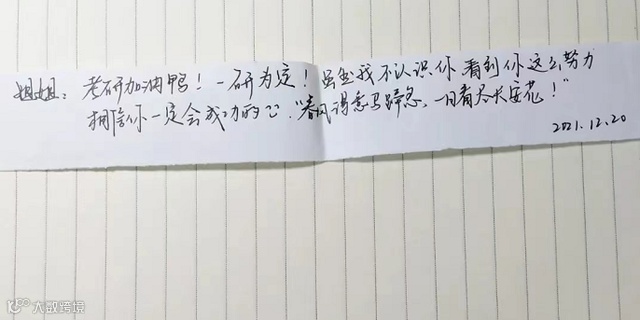 姐姐：考研加油鸭！一研为定！虽然我不认识你 看到你这么努力
相信你一定会成功的 "春风得意马蹄急，一日看尽长安花！"
2021.12.20
大数跨境